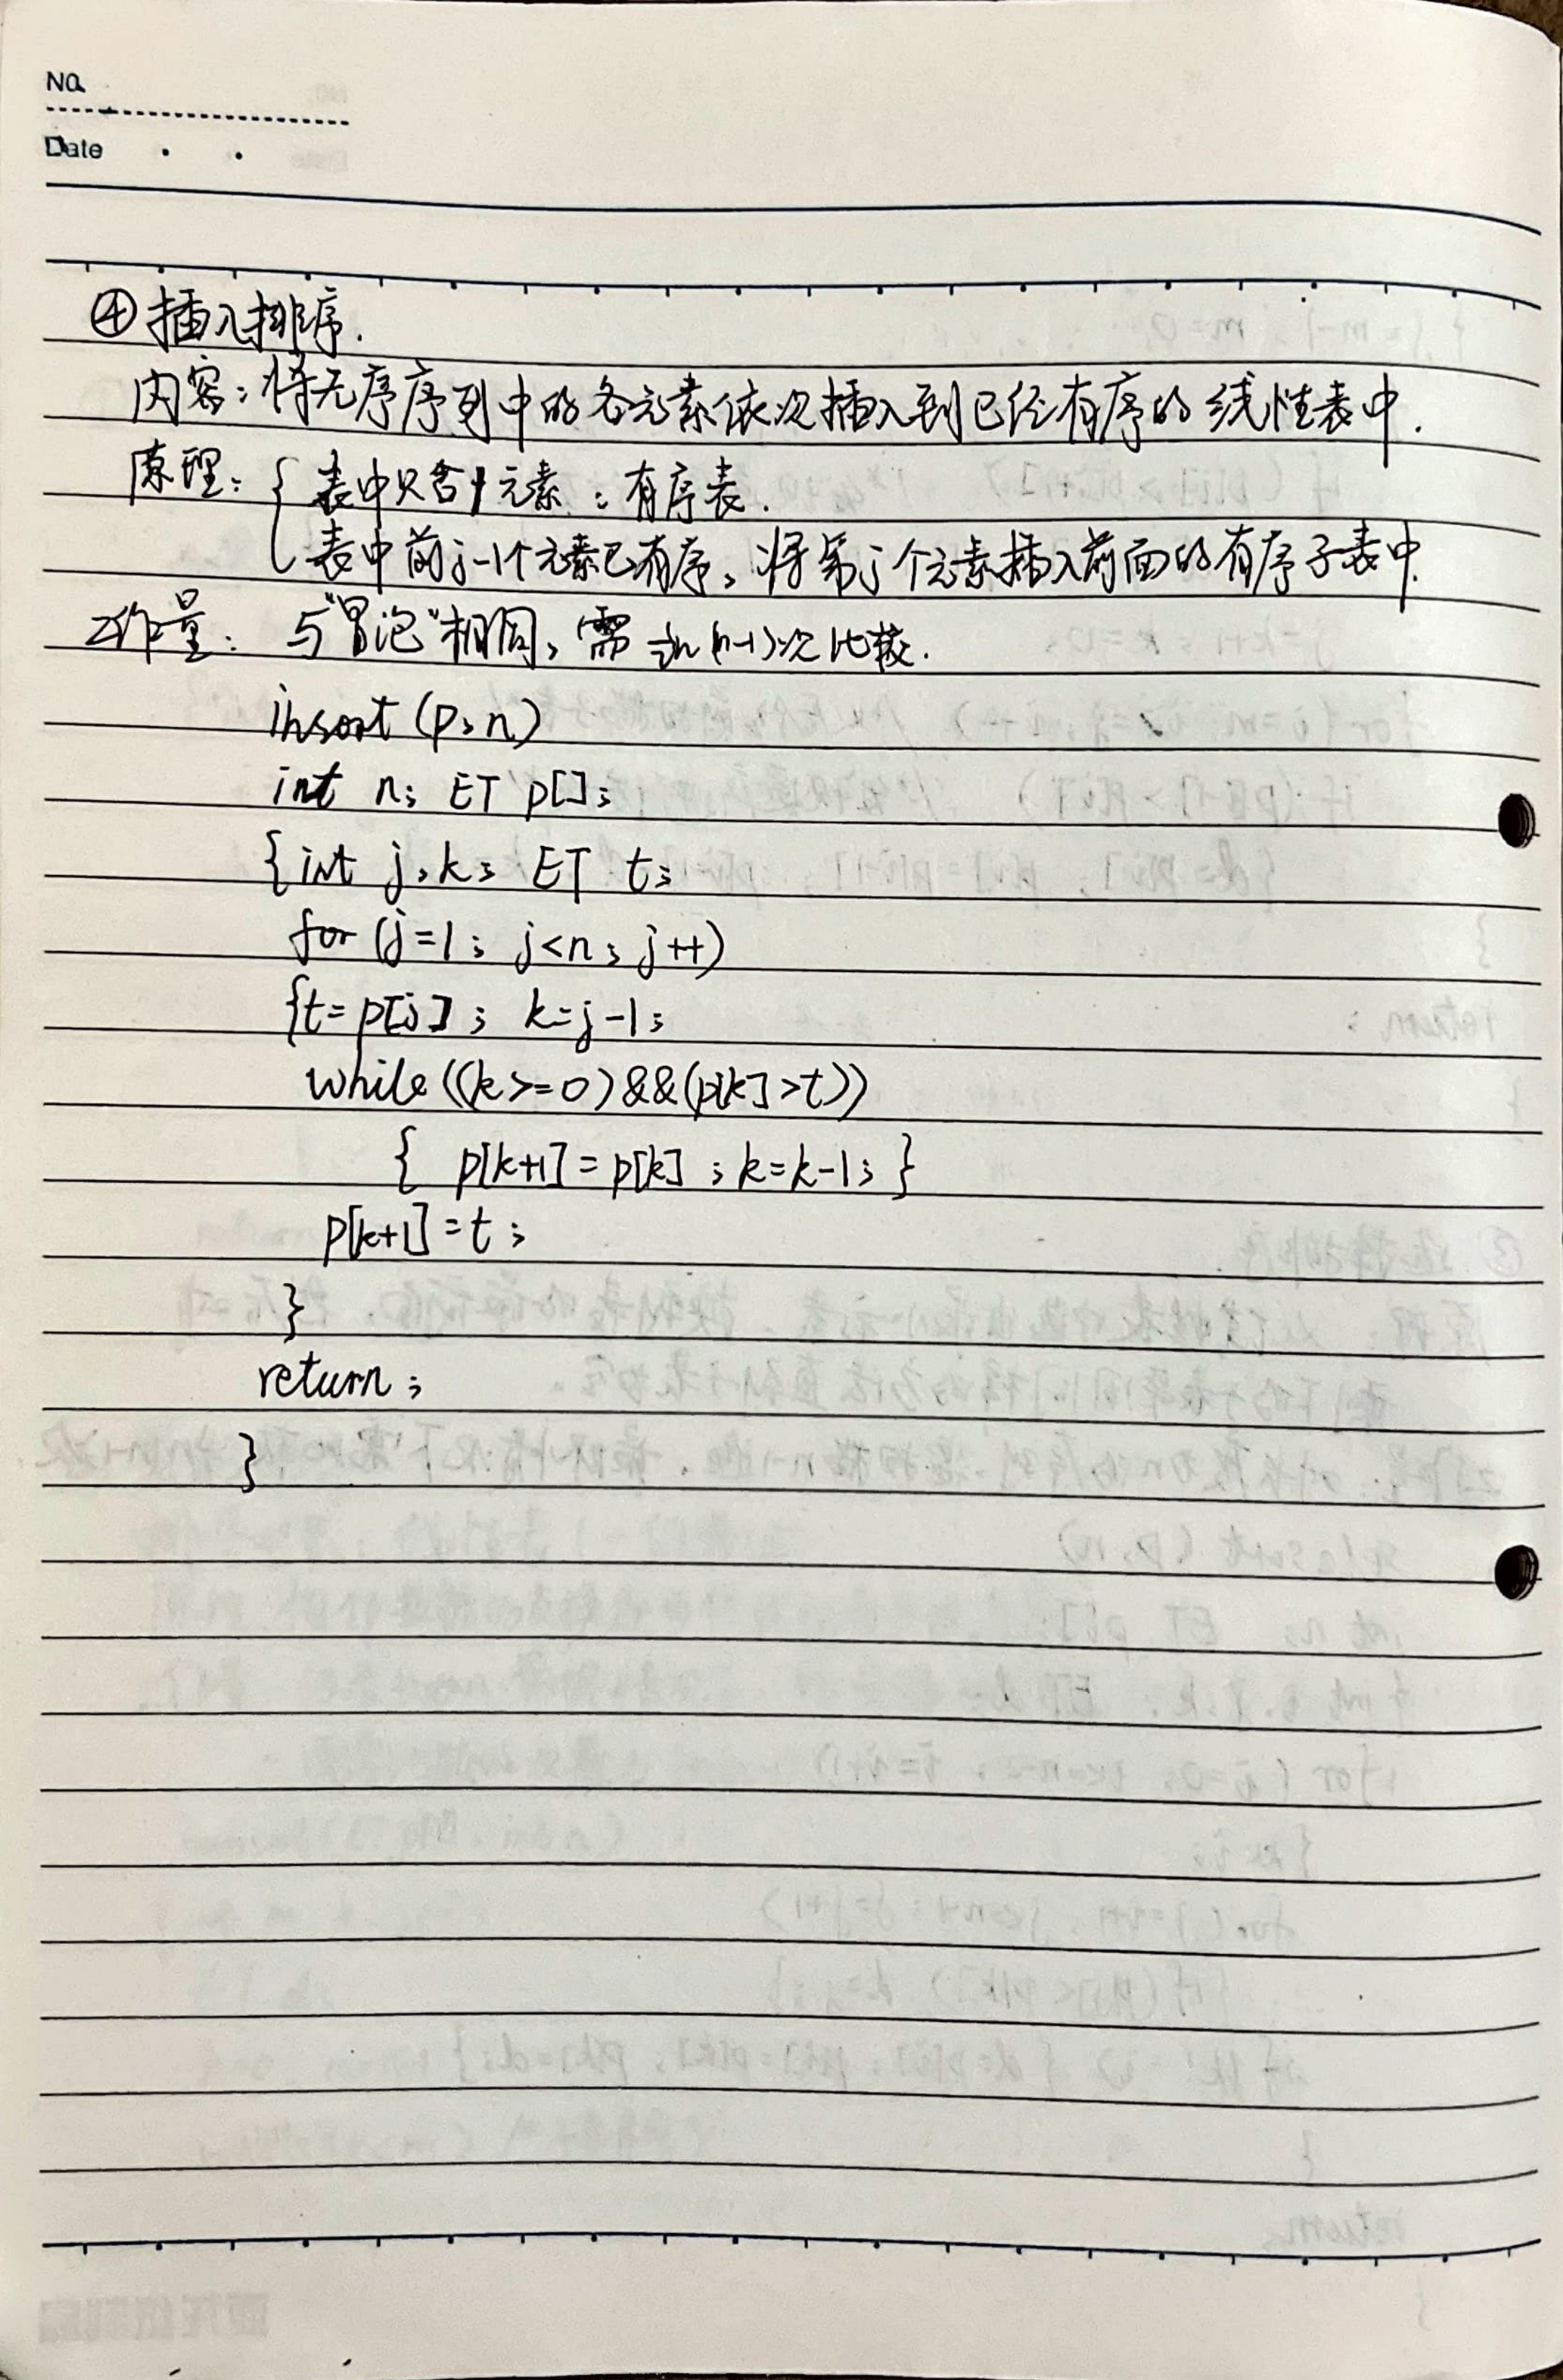 No.
Date
④插入排序.
内容:将无序序列中的各元素依次插入到已经有序的线性表中.
原理:{表中只含1元素:有序表.
表中前j-1个元素已有序,将第j个元素插入前面的有序子表中.
工作量:与"冒泡"相同,需½n(n-1)次比较.
insort(p,n)
int n; ET p[];
{int j,k; ET t;
for (j=1; j<n; j++)
{t=p[j]; k=j-1;
while((k>=0)&&(p[k]>t))
{ p[k+1]=p[k]; k=k-1; }
p[k+1]=t;
}
return;
}